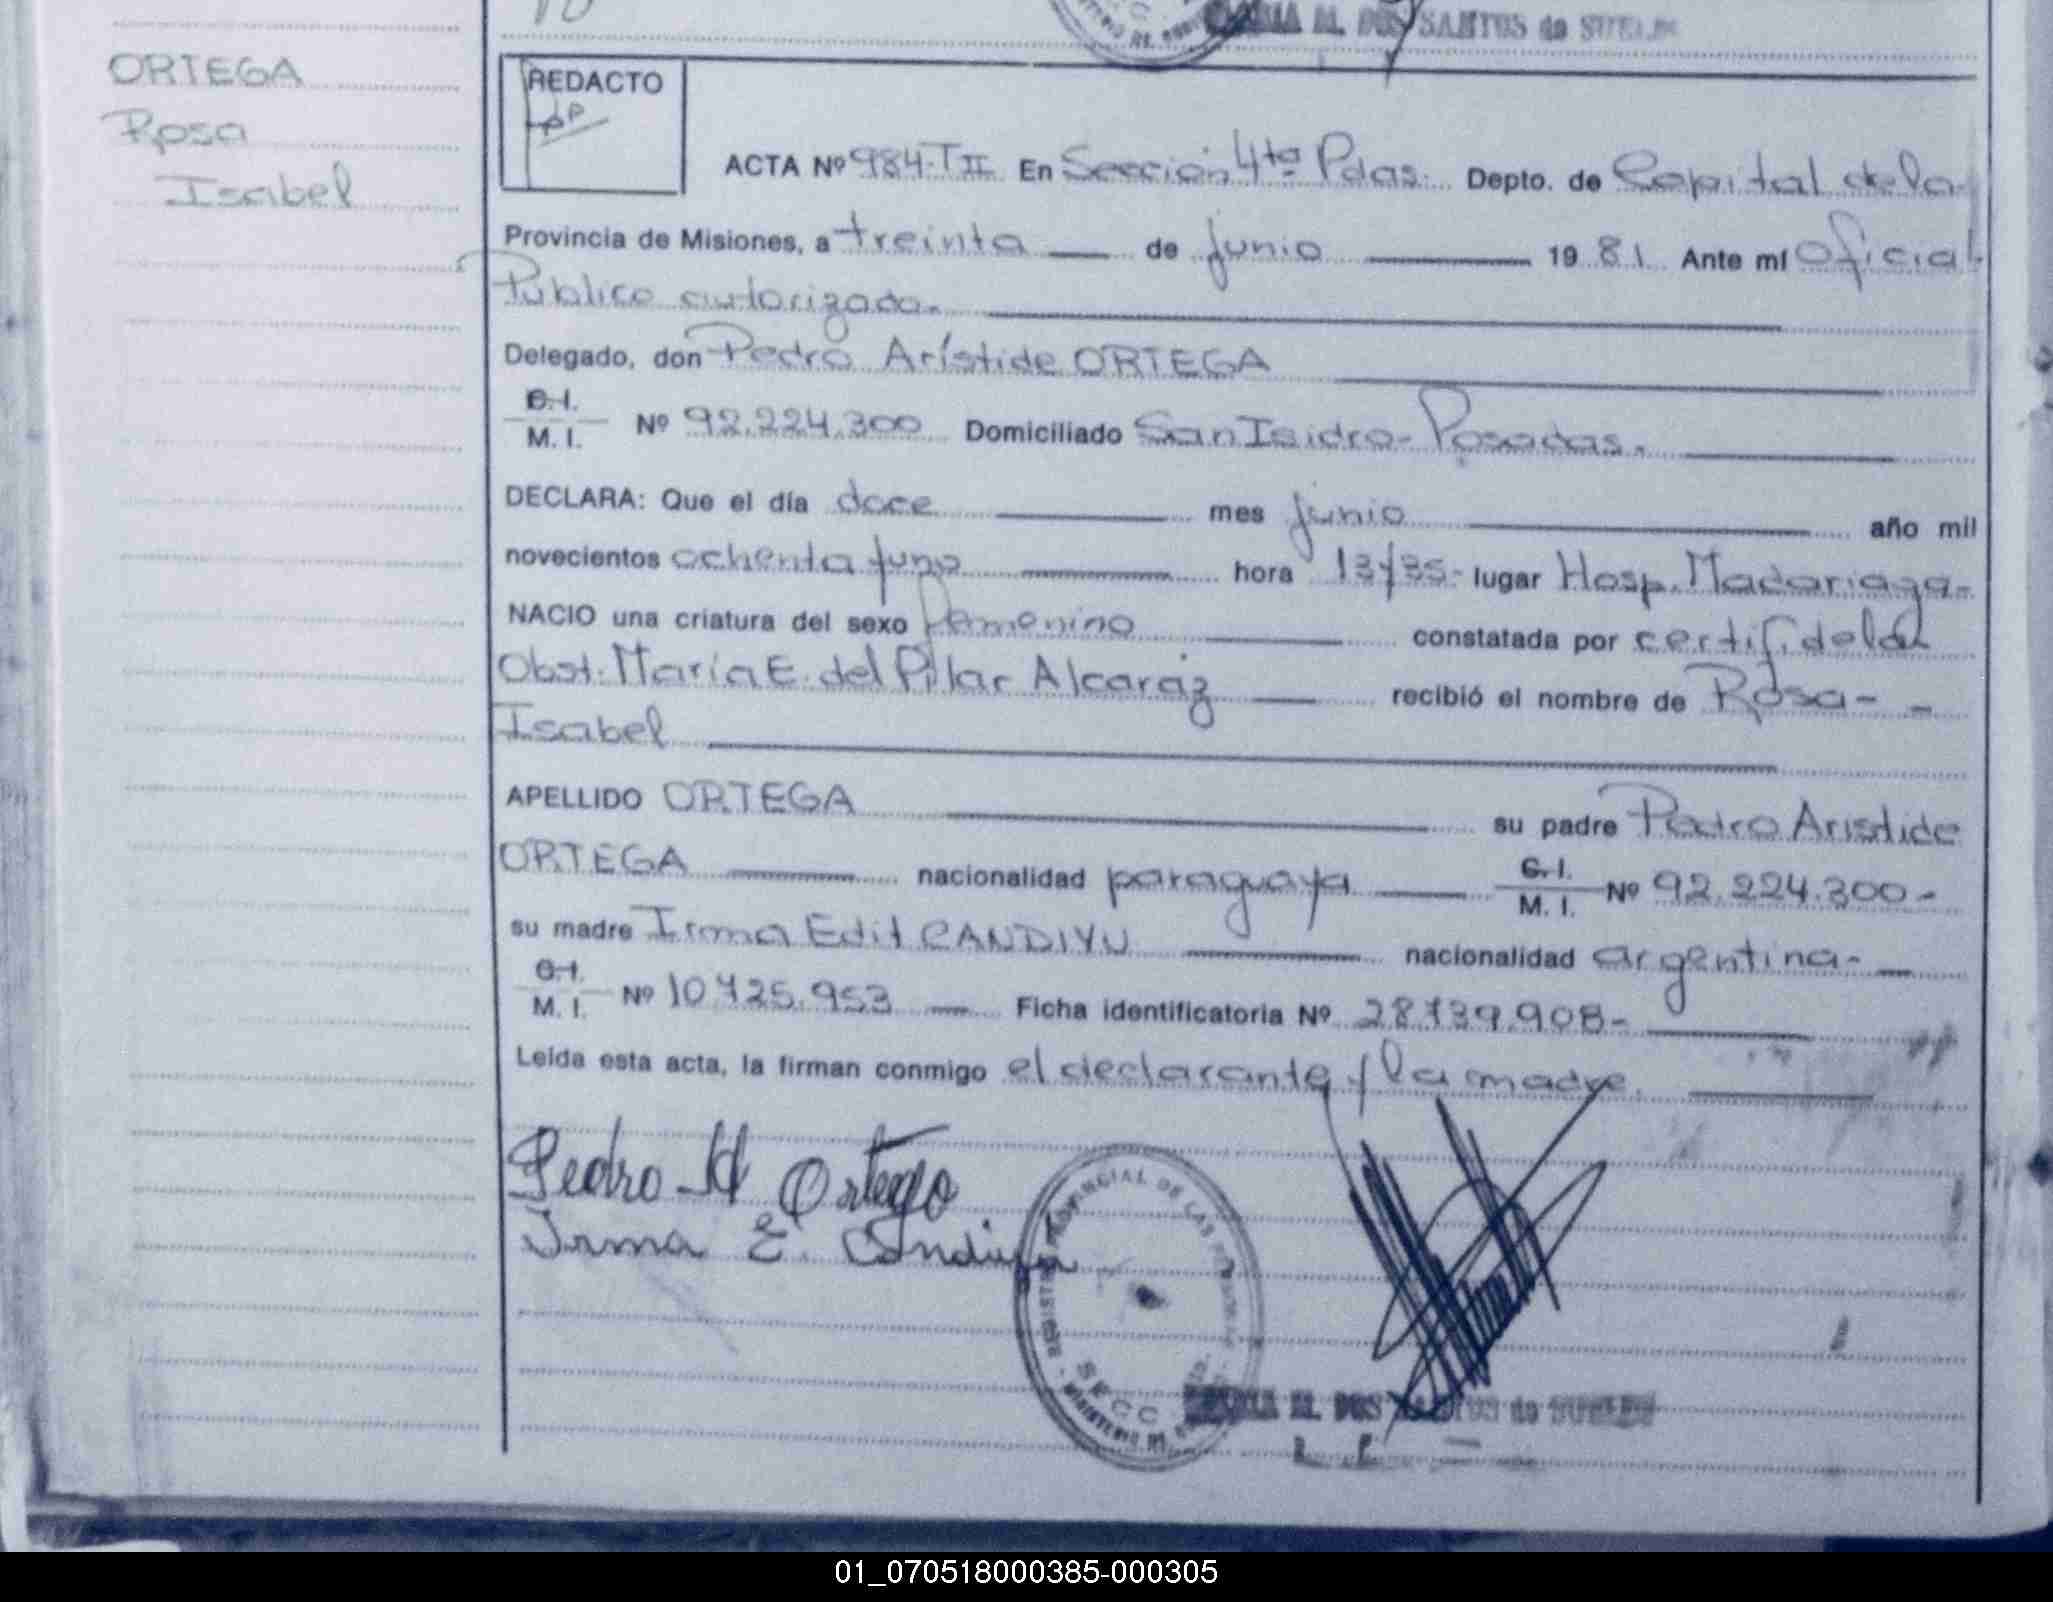 MARIA M. DOS SANTOS de SUELDO
ORTEGA
Rosa
Isabel
REDACTO
ACTA Nº 984-TII En Sección 4ta Pdas. Depto. de Capital de la
Provincia de Misiones, a treinta de junio 1981 Ante mí Oficial
Público autorizado.
Delegado, don Pedro Arístide ORTEGA
C.I.
M. I. Nº 92.224.300 Domiciliado San Isidro- Posadas.
DECLARA: Que el día doce mes junio año mil
novecientos ochenta y uno hora 13y35- lugar Hosp. Madariaga-
NACIO una criatura del sexo femenino constatada por certif. de la
Obst. María E. del Pilar Alcaraz recibió el nombre de Rosa-
Isabel
APELLIDO ORTEGA su padre Pedro Aristide
ORTEGA nacionalidad paraguaya C.I. M. I. Nº 92.224.300-
su madre Irma Edit CANDIYU nacionalidad argentina-
C.I.
M. I. Nº 10.425.953 Ficha identificatoria Nº 28.739.908-
Leída esta acta, la firman conmigo el declarante y la madre.
Pedro A Ortega
Irma E. Candiyu
REGISTRO PROVINCIAL DE LAS PERSONAS
SECC
MINISTERIO DE
MARIA M. DOS SANTOS de SUELDO
01_070518000385-000305